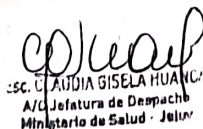 ESC. CLAUDIA GISELA HUANCA
A/C Jefatura de Despacho
Ministerio de Salud - Jujuy